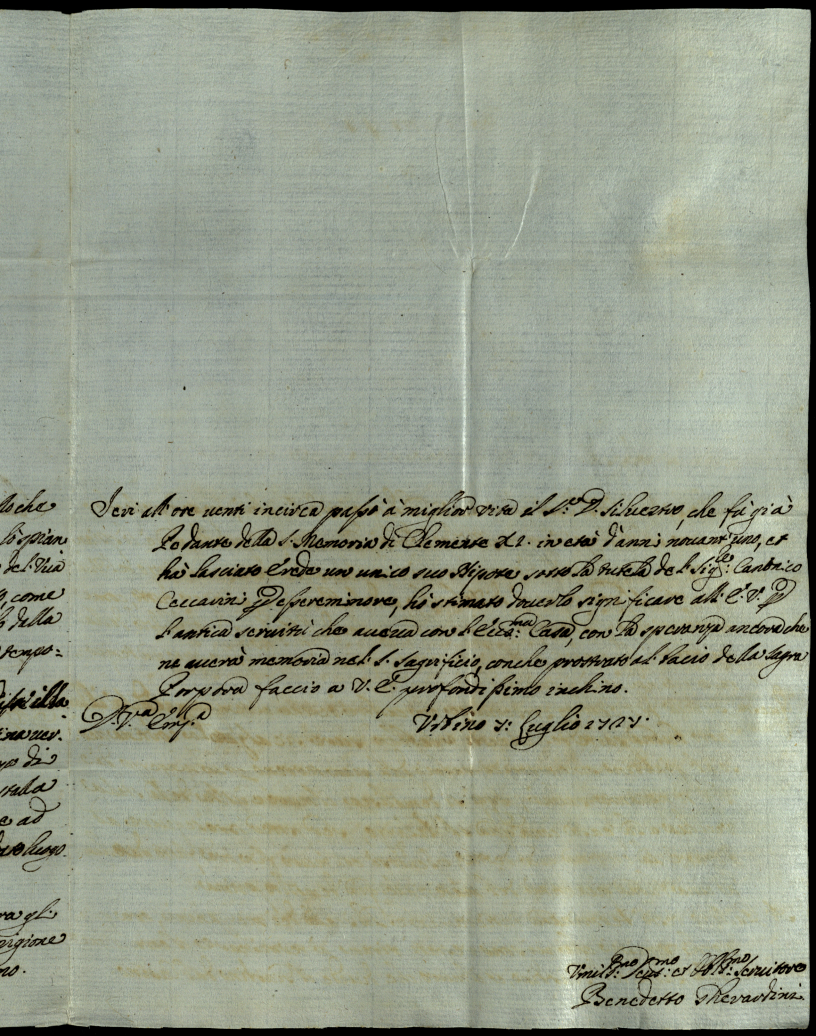 lo che
come
della
tempo=
illa
di
e ad
luogo.
no.
Jeri all'ore venti incirca passò à miglior vita il S.r D. Silvestro, che fù già
Pedante della S. Memoria di Clemente XI. in età d'anni novant'uno, et
hà lasciato Erede un unico suo Nipote sotto la tutela del Sig.re Canonico
Ceccarini p essere minore, hò stimato doverlo significare all'E. V. p
l'antica servitù che aveva con l'Ecc.ma Casa, con la speranza ancora che
ne averà memoria nel S. Sagrificio, con che prostrato al bacio della Sagra
Porpora faccio a V. E. profondissimo inchino.
D. V.a Em.a Urbino Luglio
Umil.mo Dev.mo et Obl.mo Servitore
Benedetto